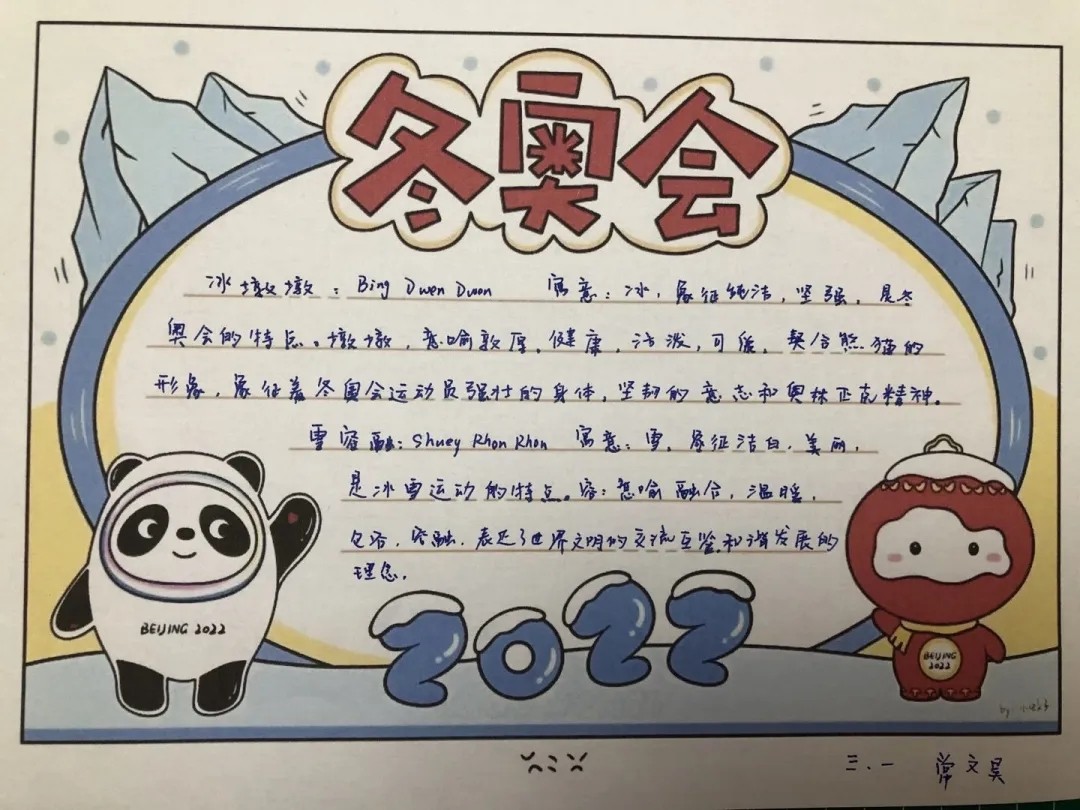 冬奥会
冰墩墩：Bing Dwen Dwen 寓意：冰，象征纯洁，坚强，是冬
奥会的特点。墩墩，意喻敦厚，健康，活泼，可爱，契合熊猫的
形象，象征着冬奥会运动员强壮的身体，坚韧的意志和奥林匹克精神。
雪容融：Shuey Rhon Rhon 寓意：雪，象征洁白，美丽，
是冰雪运动的特点。容：意喻融合，温暖，
包容，容融，表达了世界文明的交流互鉴和谐发展的
理念。
BEIJING 2022
BEIJING
2022
2022
by:
三、一 常文昊